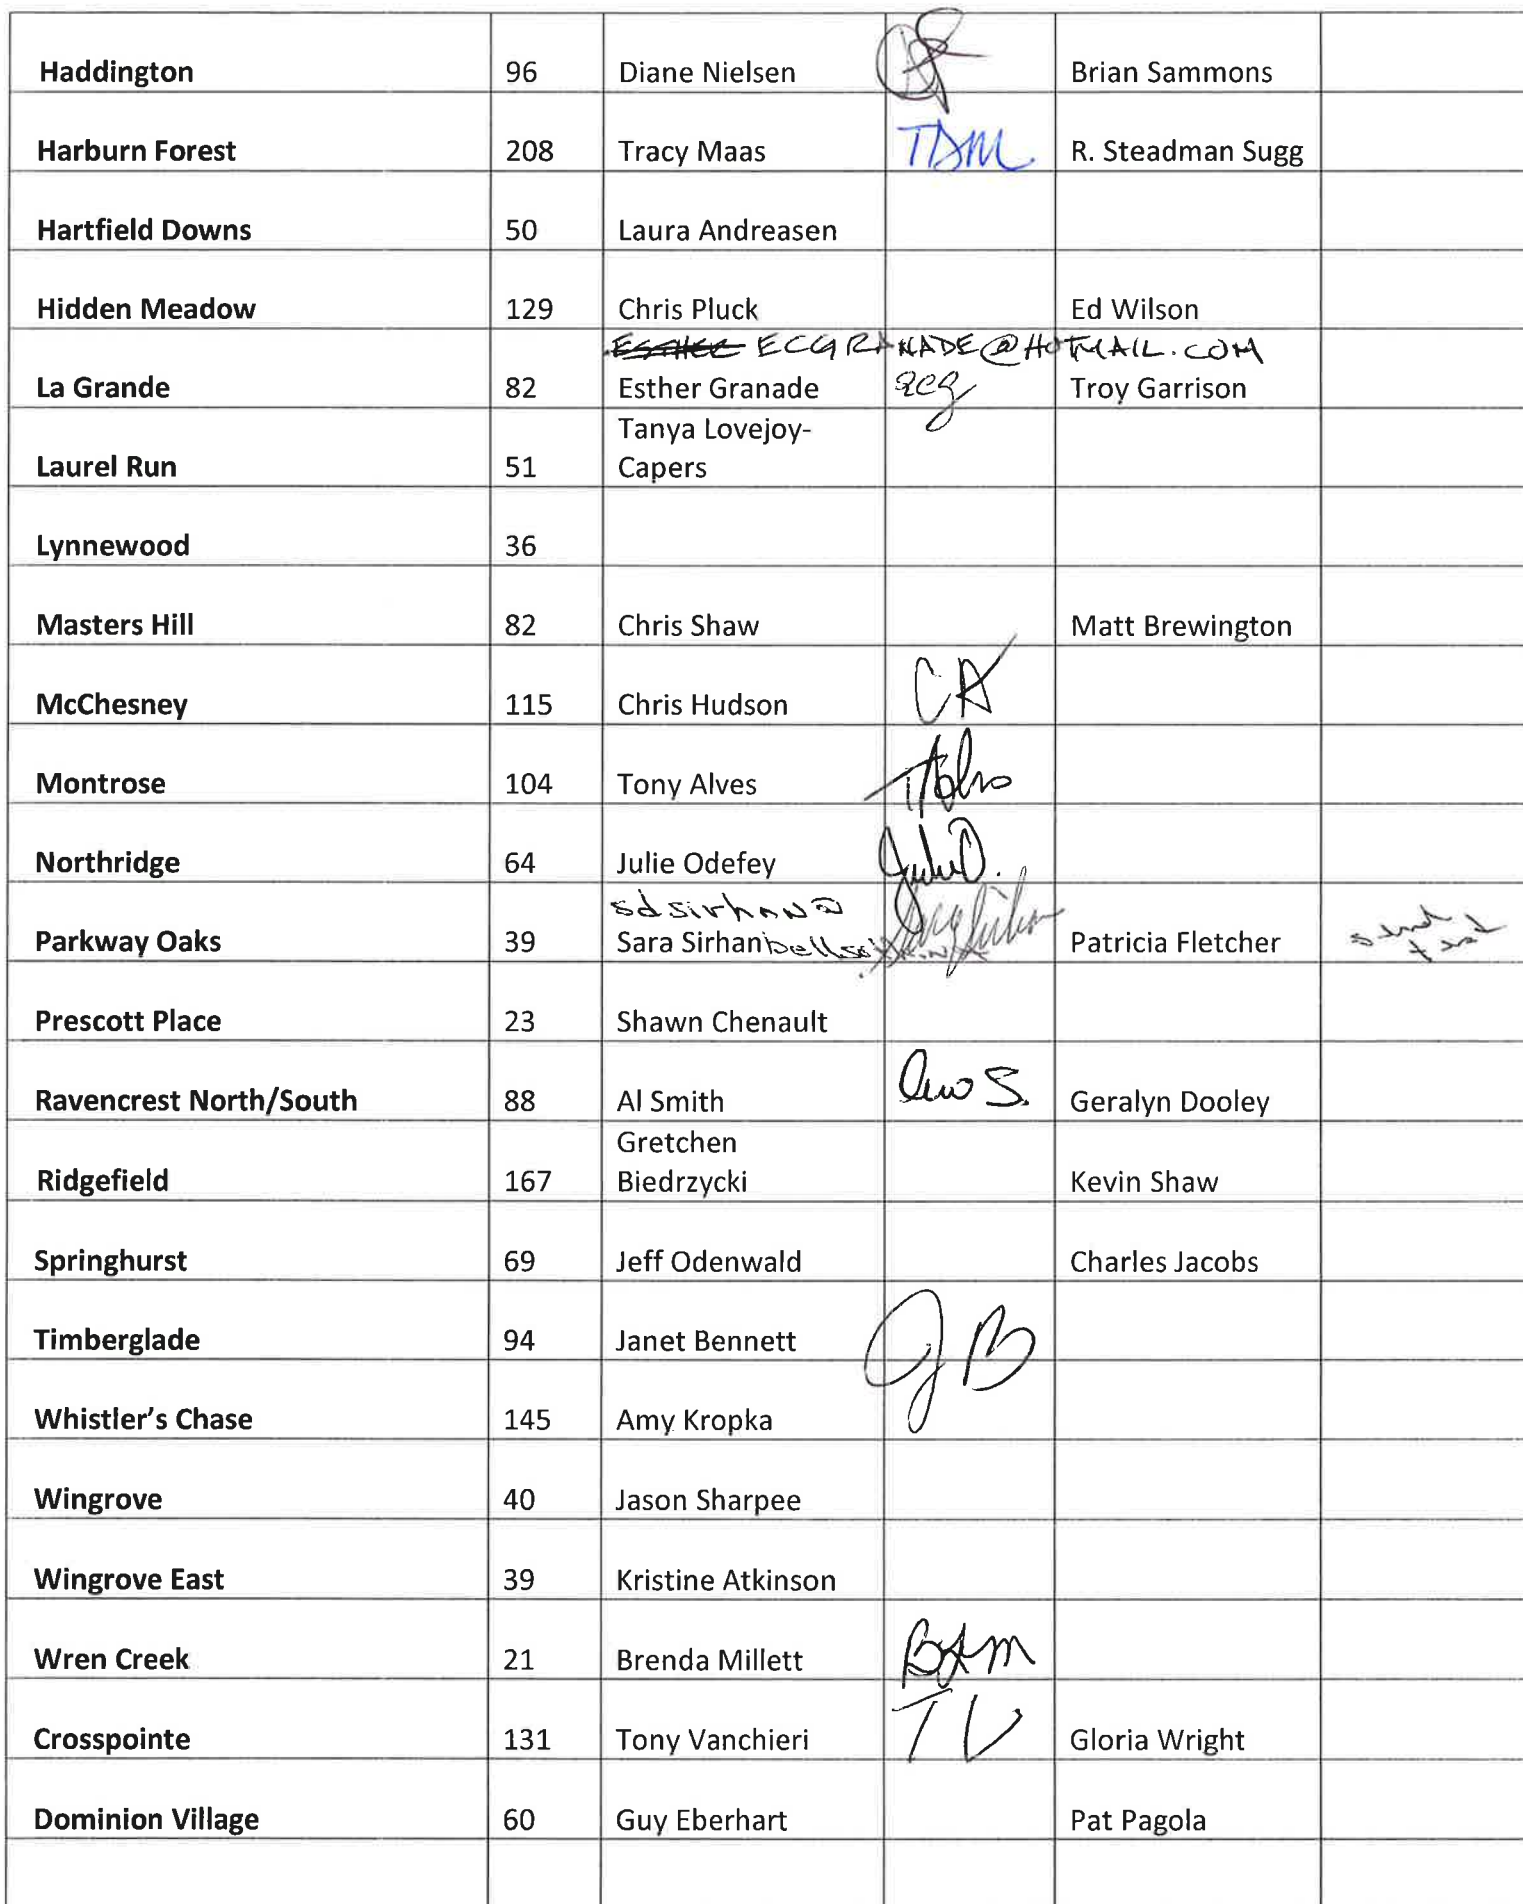 Haddington 96 Diane Nielsen Brian Sammons
Harburn Forest 208 Tracy Maas TDM R. Steadman Sugg
Hartfield Downs 50 Laura Andreasen
Hidden Meadow 129 Chris Pluck Ed Wilson
ECGRANADE@HOTMAIL.COM
La Grande 82 Esther Granade ecg Troy Garrison
Tanya Lovejoy-
Laurel Run 51 Capers
Lynnewood 36
Masters Hill 82 Chris Shaw Matt Brewington
McChesney 115 Chris Hudson
Montrose 104 Tony Alves
Northridge 64 Julie Odefey Julie O.
sdsirhan@
Parkway Oaks 39 Sara Sirhan Patricia Fletcher
Prescott Place 23 Shawn Chenault
Ravencrest North/South 88 Al Smith Geralyn Dooley
Gretchen
Ridgefield 167 Biedrzycki Kevin Shaw
Springhurst 69 Jeff Odenwald Charles Jacobs
Timberglade 94 Janet Bennett JB
Whistler's Chase 145 Amy Kropka
Wingrove 40 Jason Sharpee
Wingrove East 39 Kristine Atkinson
Wren Creek 21 Brenda Millett BAM
Crosspointe 131 Tony Vanchieri TV Gloria Wright
Dominion Village 60 Guy Eberhart Pat Pagola